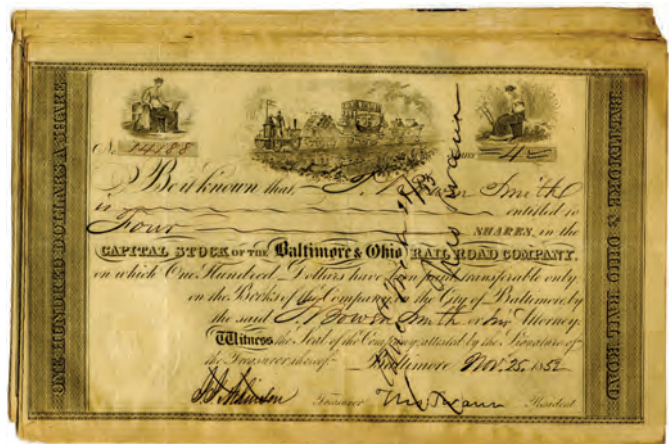 ONE HUNDRED DOLLARS A SHARE
BALTIMORE & OHIO RAIL ROAD
No. 14188
4
Be it known that Smith
is entitled to
Four SHARES, in the
CAPITAL STOCK OF THE Baltimore & Ohio RAIL ROAD COMPANY,
on which One Hundred Dollars have been paid, transferable only
on the Books of the Company in the City of Baltimore by
the said J. Bowen Smith or his Attorney.
Witness the Seal of the Company, attested by the Signature of
the Treasurer thereof. Baltimore Nov. 25, 1852
Treasurer Tho. Swann President